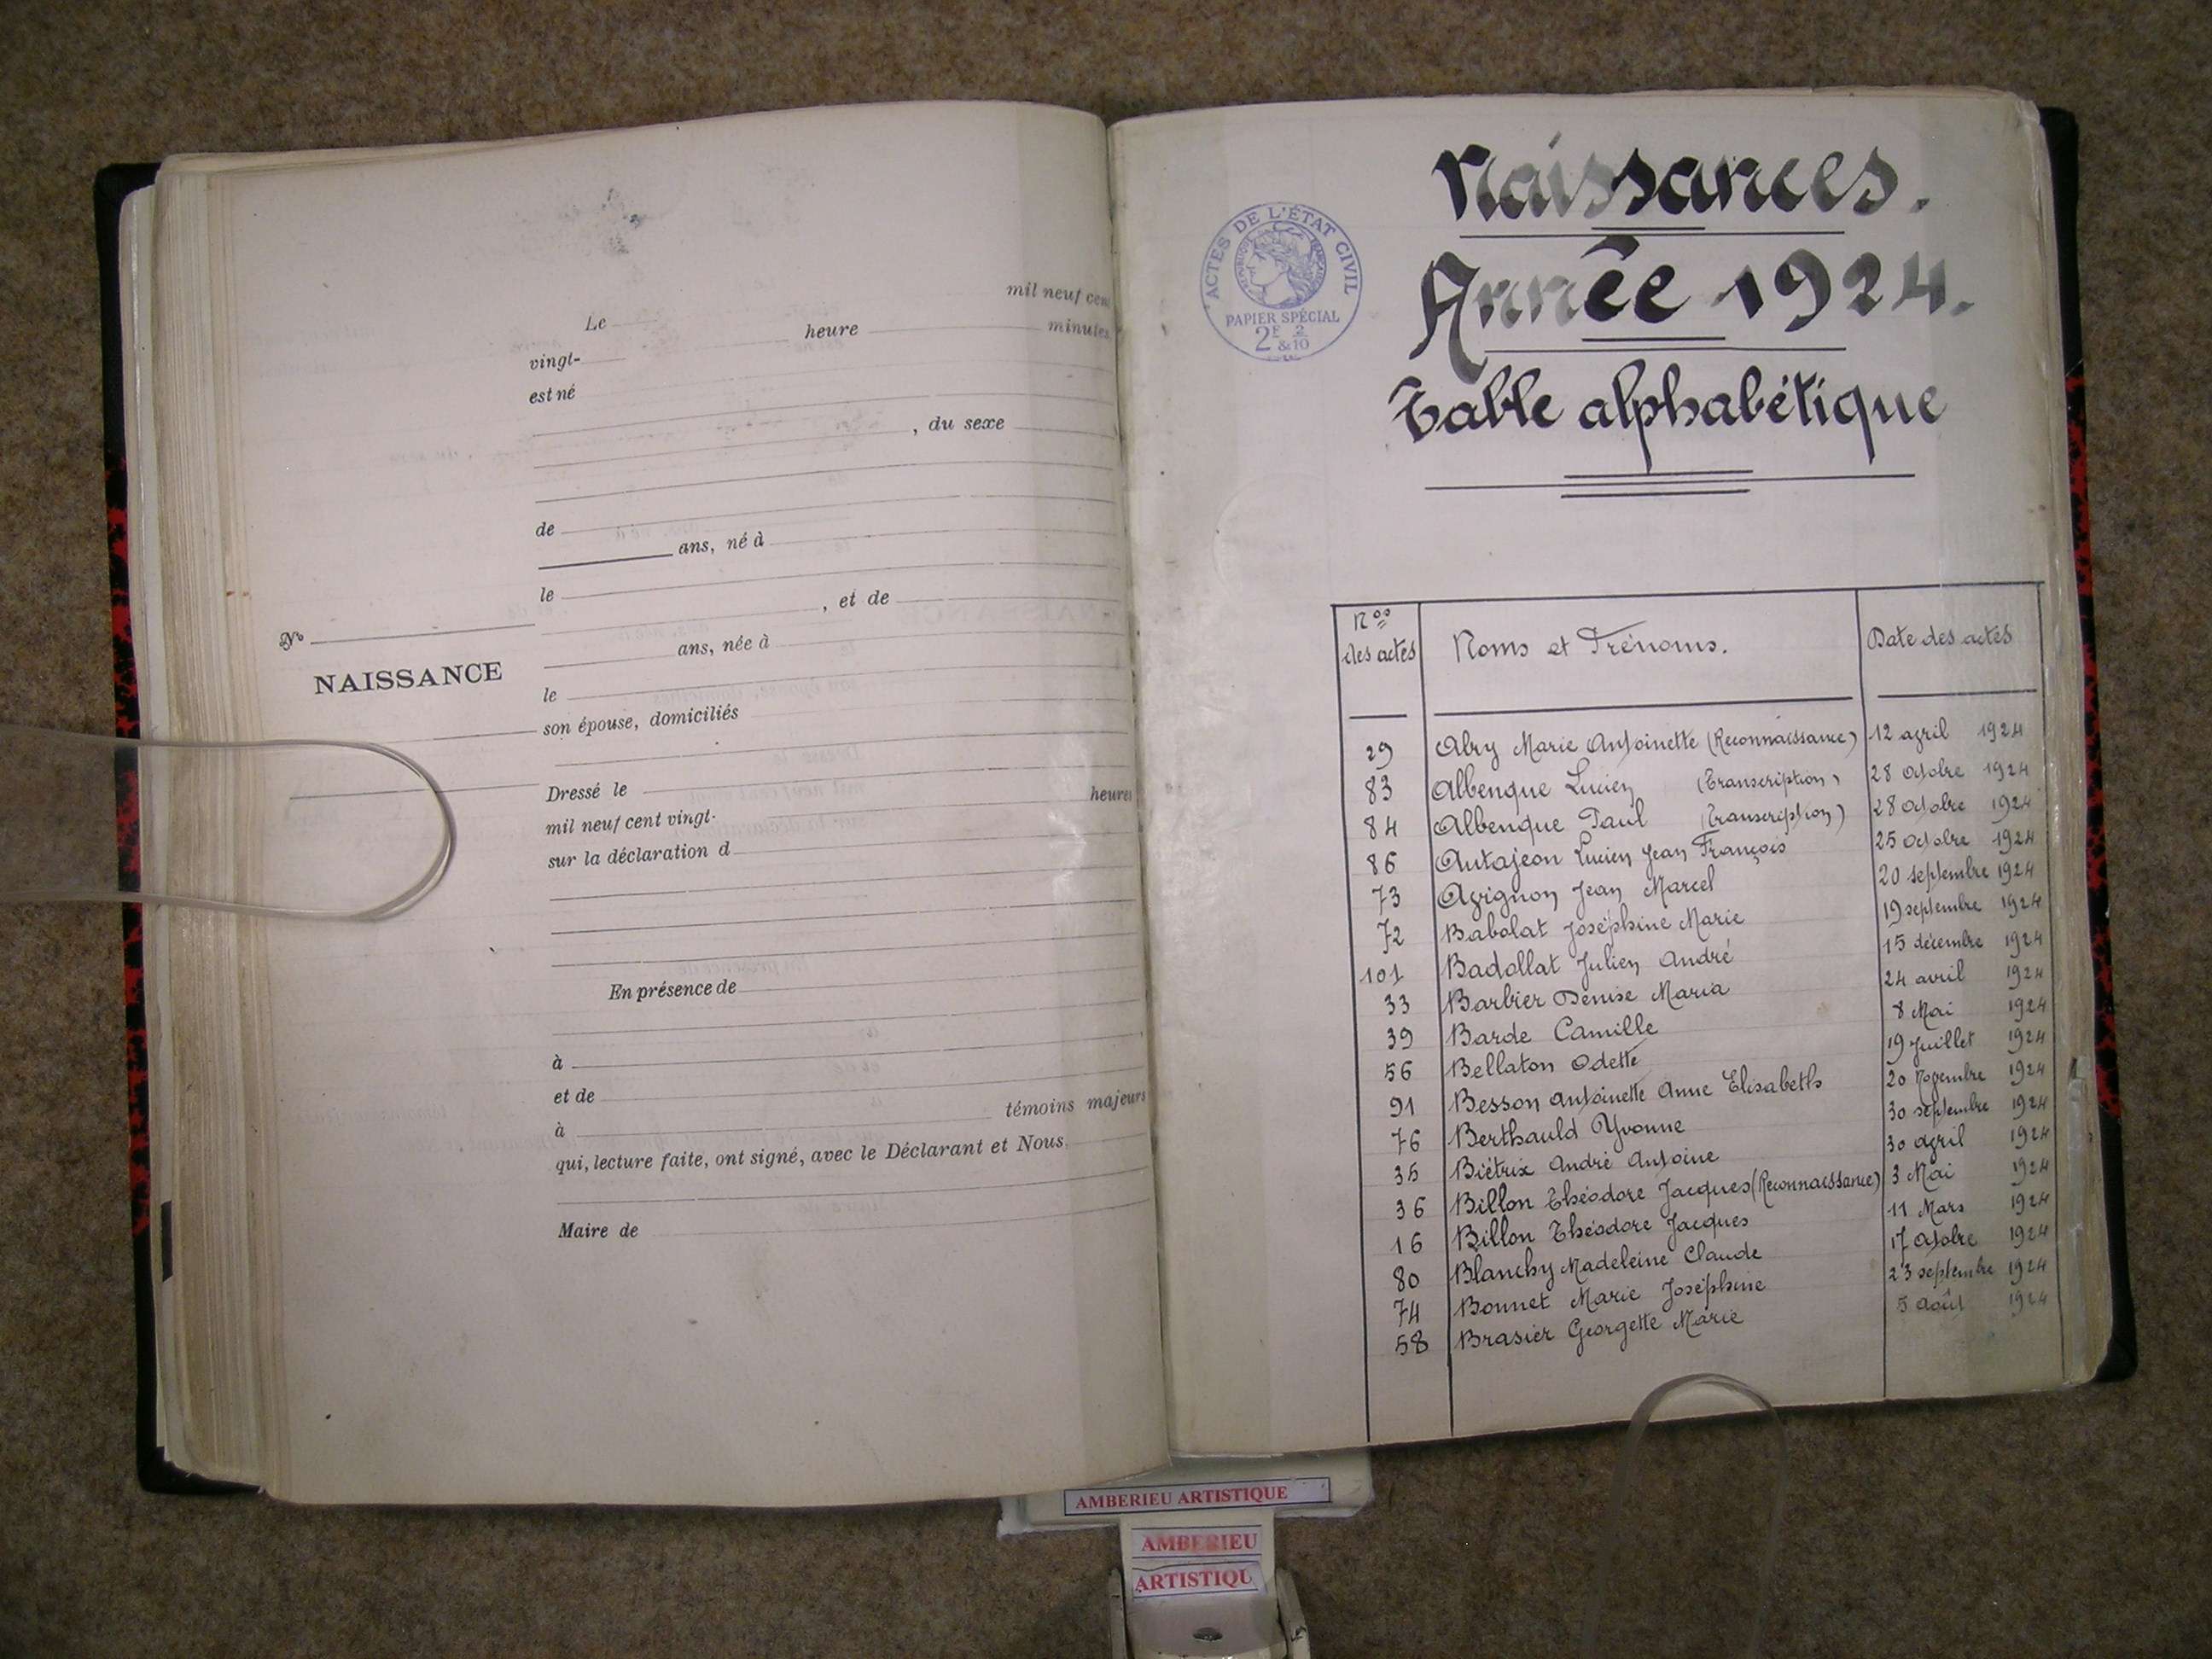 Le mil neuf cent
vingt- heure minutes
est né
, du sexe
de
ans, né à
le
, et de
No
ans, née à
NAISSANCE
le
son épouse, domiciliés
Dressé le
mil neuf cent vingt- heures
sur la déclaration d
En présence de
à
et de
à témoins majeurs
qui, lecture faite, ont signé, avec le Déclarant et Nous
Maire de
Naissances.
Année 1924.
Table alphabétique
ACTES DE L'ÉTAT CIVIL
PAPIER SPÉCIAL
2F 2
&10
Nos des actes Noms et Prénoms. Date des actes
29 Abry Marie Antoinette (Reconnaissance) 12 avril 1924
83 Albenque Lucien (Transcription) 28 Octobre 1924
84 Albenque Paul (Transcription) 28 Octobre 1924
86 Autajeon Lucien Jean François 25 Octobre 1924
73 Avignon Jean Marcel 20 septembre 1924
72 Babolat Joséphine Marie 19 septembre 1924
101 Badollat Julien André 15 décembre 1924
33 Barbier Denise Maria 24 avril 1924
39 Barde Camille 8 Mai 1924
56 Bellaton Odette 19 Juillet 1924
91 Besson Antoinette Anne Elisabeth 20 Novembre 1924
76 Berthauld Yvonne 30 septembre 1924
35 Biétrix André Antoine 30 avril 1924
36 Billon Théodore Jacques (Reconnaissance) 3 Mai 1924
16 Billon Théodore Jacques 11 Mars 1924
80 Blanchy Madeleine Claude 17 Octobre 1924
74 Bonnet Marie Joséphine 23 septembre 1924
58 Brasier Georgette Marie 5 août 1924
AMBERIEU ARTISTIQUE
AMBERIEU
ARTISTIQU